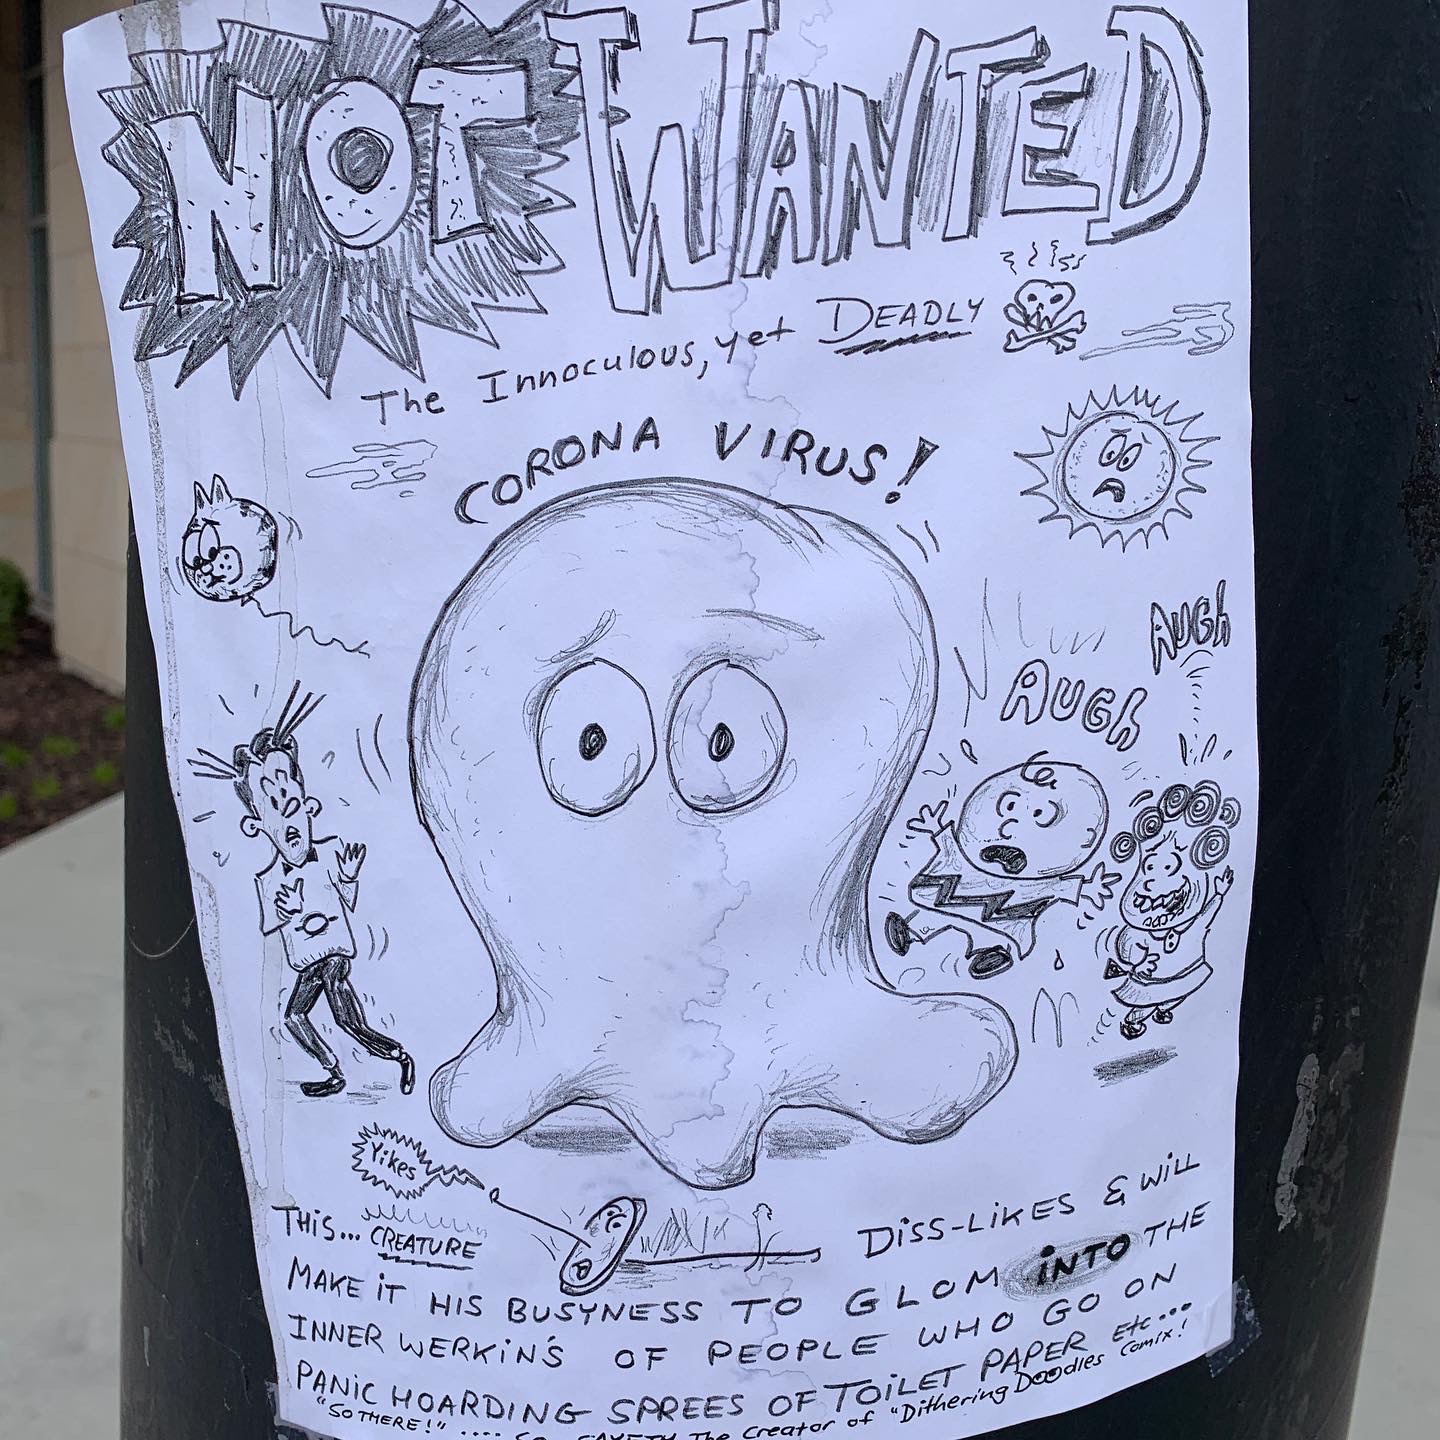 NOT WANTED
The Innoculous, yet DEADLY
CORONA VIRUS!
AUGh
AUGh
Yikes
THIS... CREATURE DISS-LIKES & WILL
MAKE IT HIS BUSYNESS TO GLOM INTO THE
INNER WERKIN'S OF PEOPLE WHO GO ON
PANIC HOARDING SPREES OF TOILET PAPER ETC...
"SO THERE!" .... The Creator of "Dithering Doodles Comix!